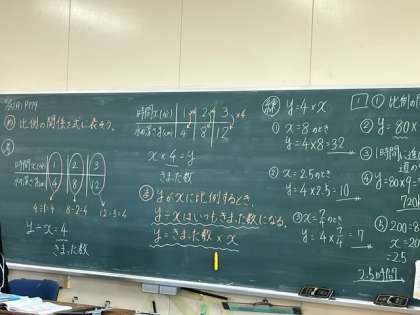 P179
め 比例の関係を式に表そう。
時間x(分) 1 2 3
水の深さy(cm) 4 8 12
4÷1=4 8÷2=4 12÷3=4
y÷x=4
きまった数
時間x(分) 1 2 3
水の深さy(cm) 4 8 12
×4
x×4=y
きまった数
ま yがxに比例するとき、
y÷xはいつもきまった数になる。
y=きまった数×x
練 y=4×x
① x=8のとき
y=4×8=32
② x=2.5のとき
y=4×2.5=10
y=4×7/4=7
1 ① 比例の
② y=80×
③ 1時間に進
道の
④ y=80×9
720
⑤ 200=8
=2.5
2.5時間